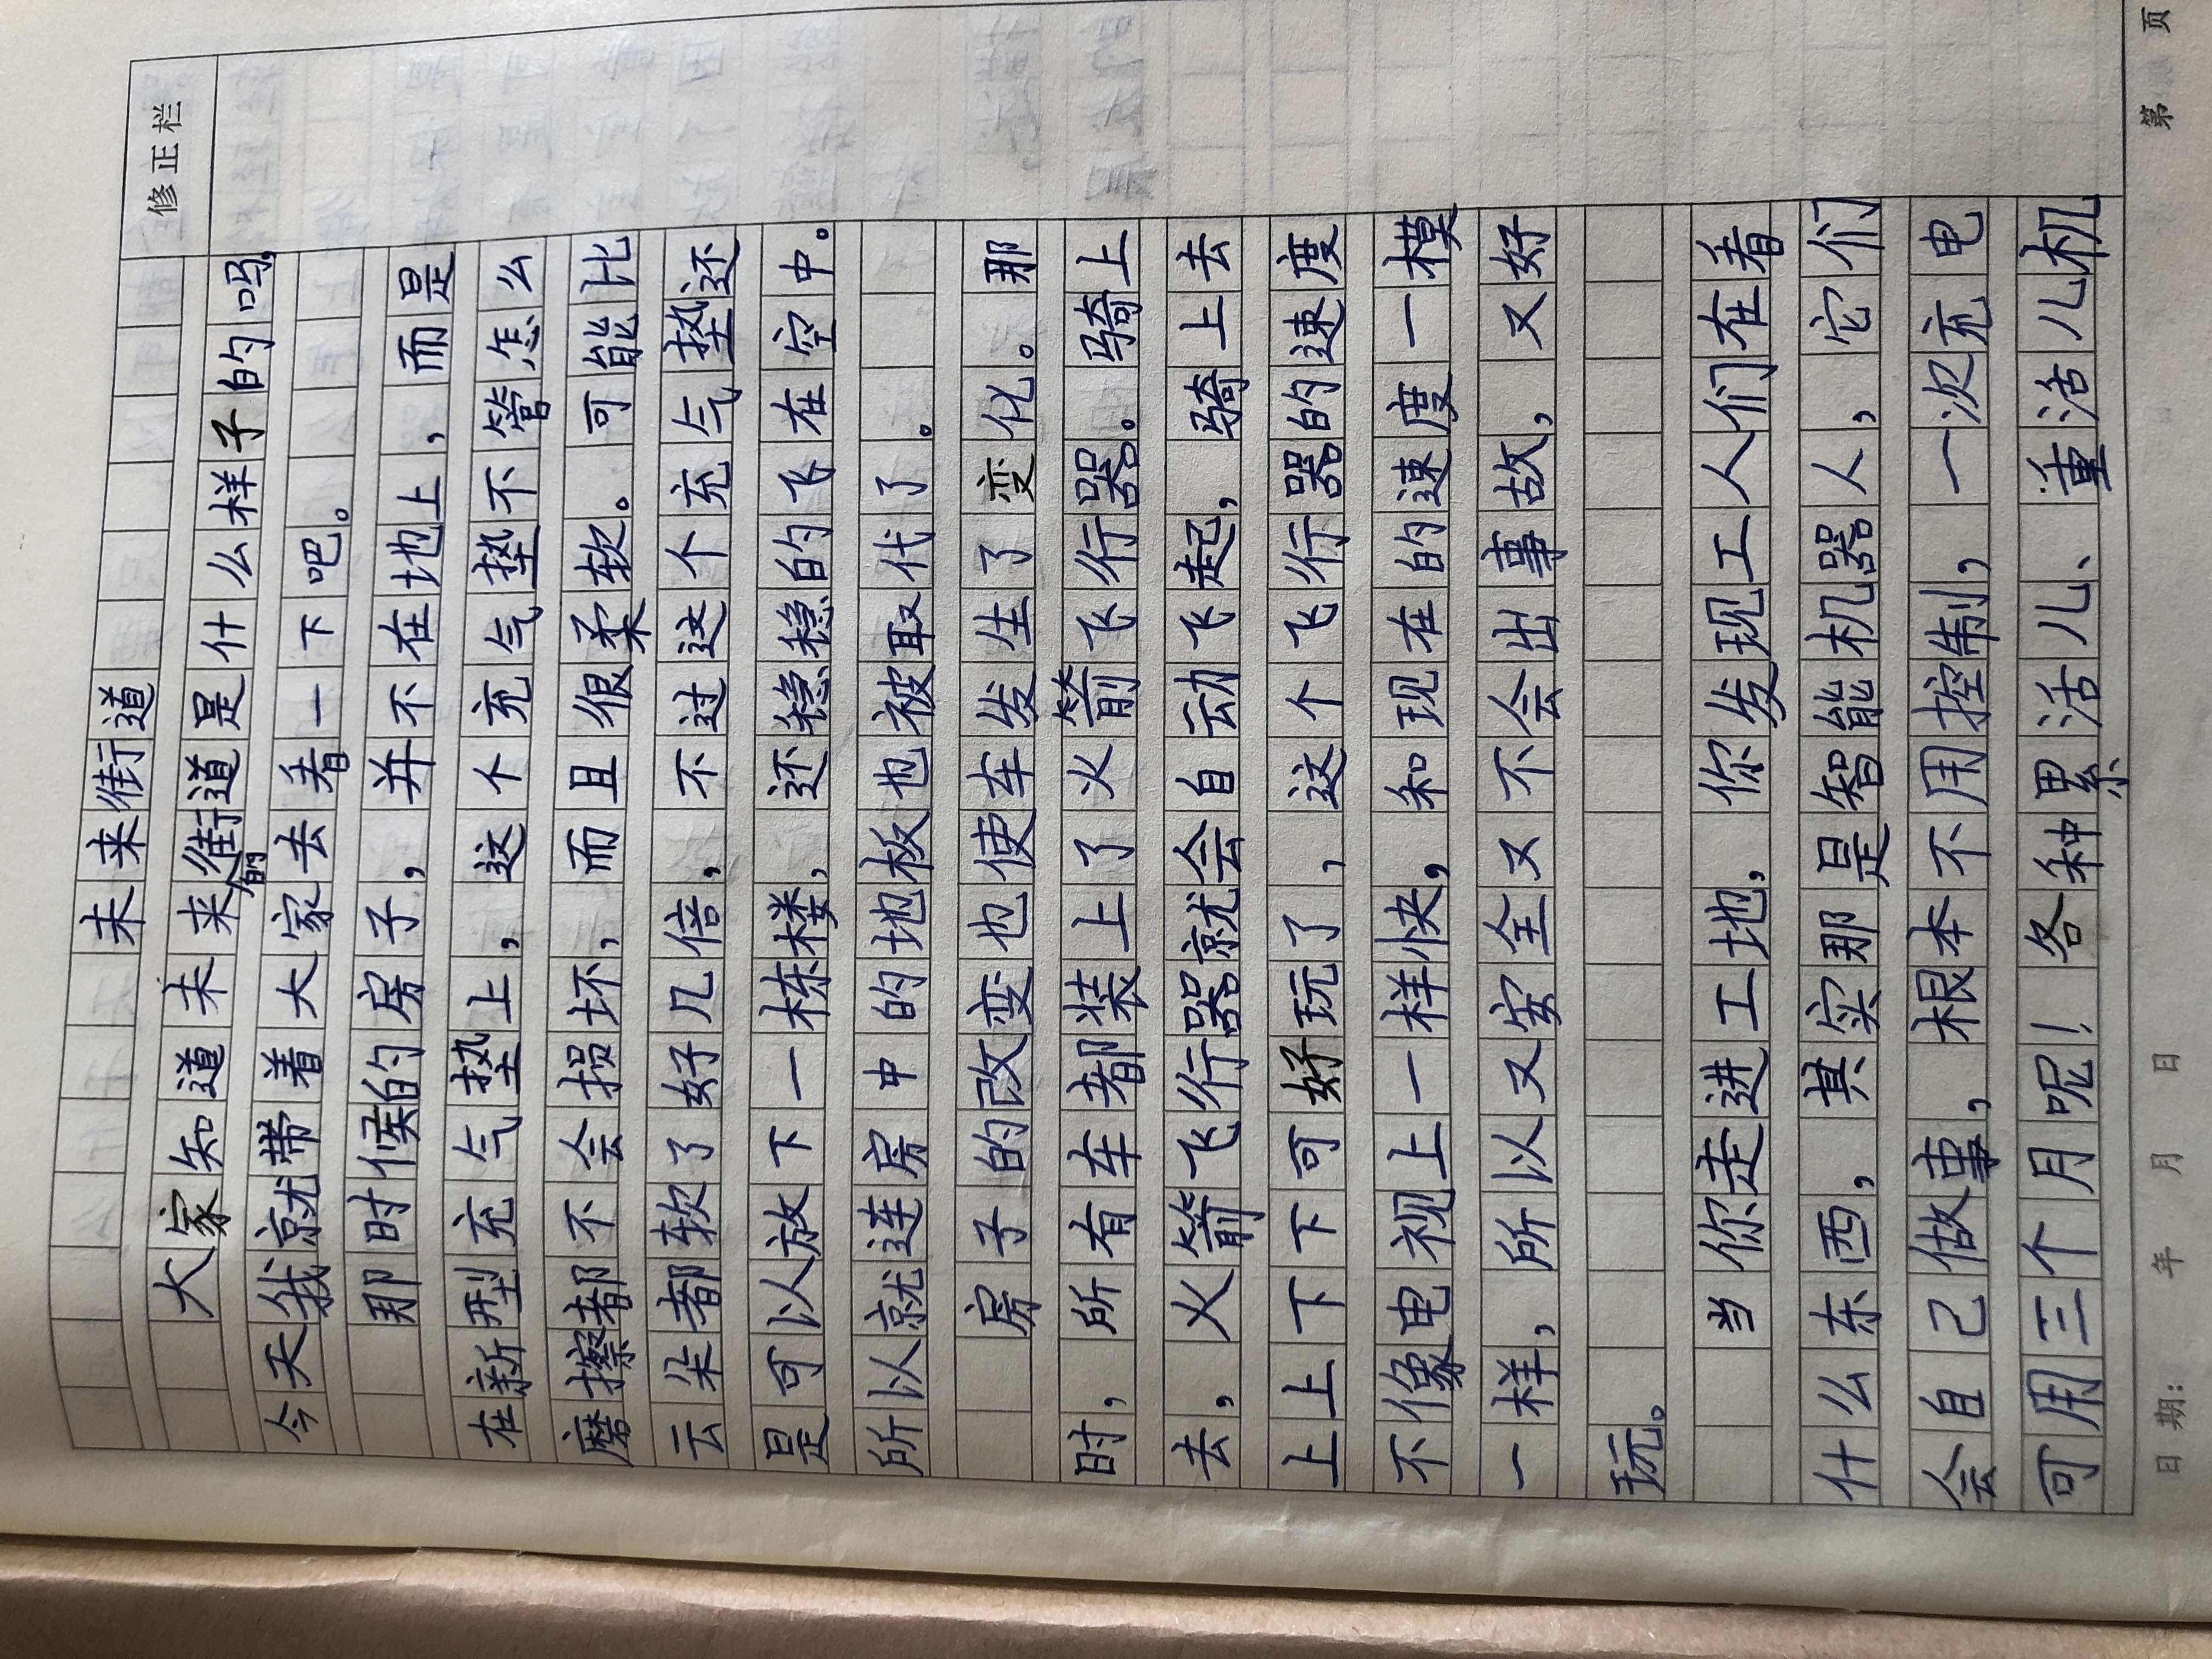 修正栏
未来街道
大家知道未来街道是什么样子的吗。
今天我就带着大家们去看一下吧。
那时候的房子，并不在地上，而是
在新型充气垫上，这个充气垫不管怎么
磨擦都不会损坏，而且很柔软。可能比
云朵都软了好几倍，不过这个充气垫还
是可以放下一栋楼，还稳稳的飞在空中。
所以就连房中的地板也被取代了。
房子的改变也使车发生了变化。那
时，所有车都装上了火箭飞行器。骑上
去，火箭飞行器就会自动飞起，骑上去
上上下下可好玩了，这个飞行器的速度
不像电视上一样快，和现在的速度一模
一样，所以又安全又不会出事故，又好
玩。
当你走进工地，你发现工人们在看
什么东西，其实那是智能机器人，它们
会自己做事，根本不用控制，一次充电
可用三个月呢！各种累活儿、重活儿机
日期： 年 月 日 第 页